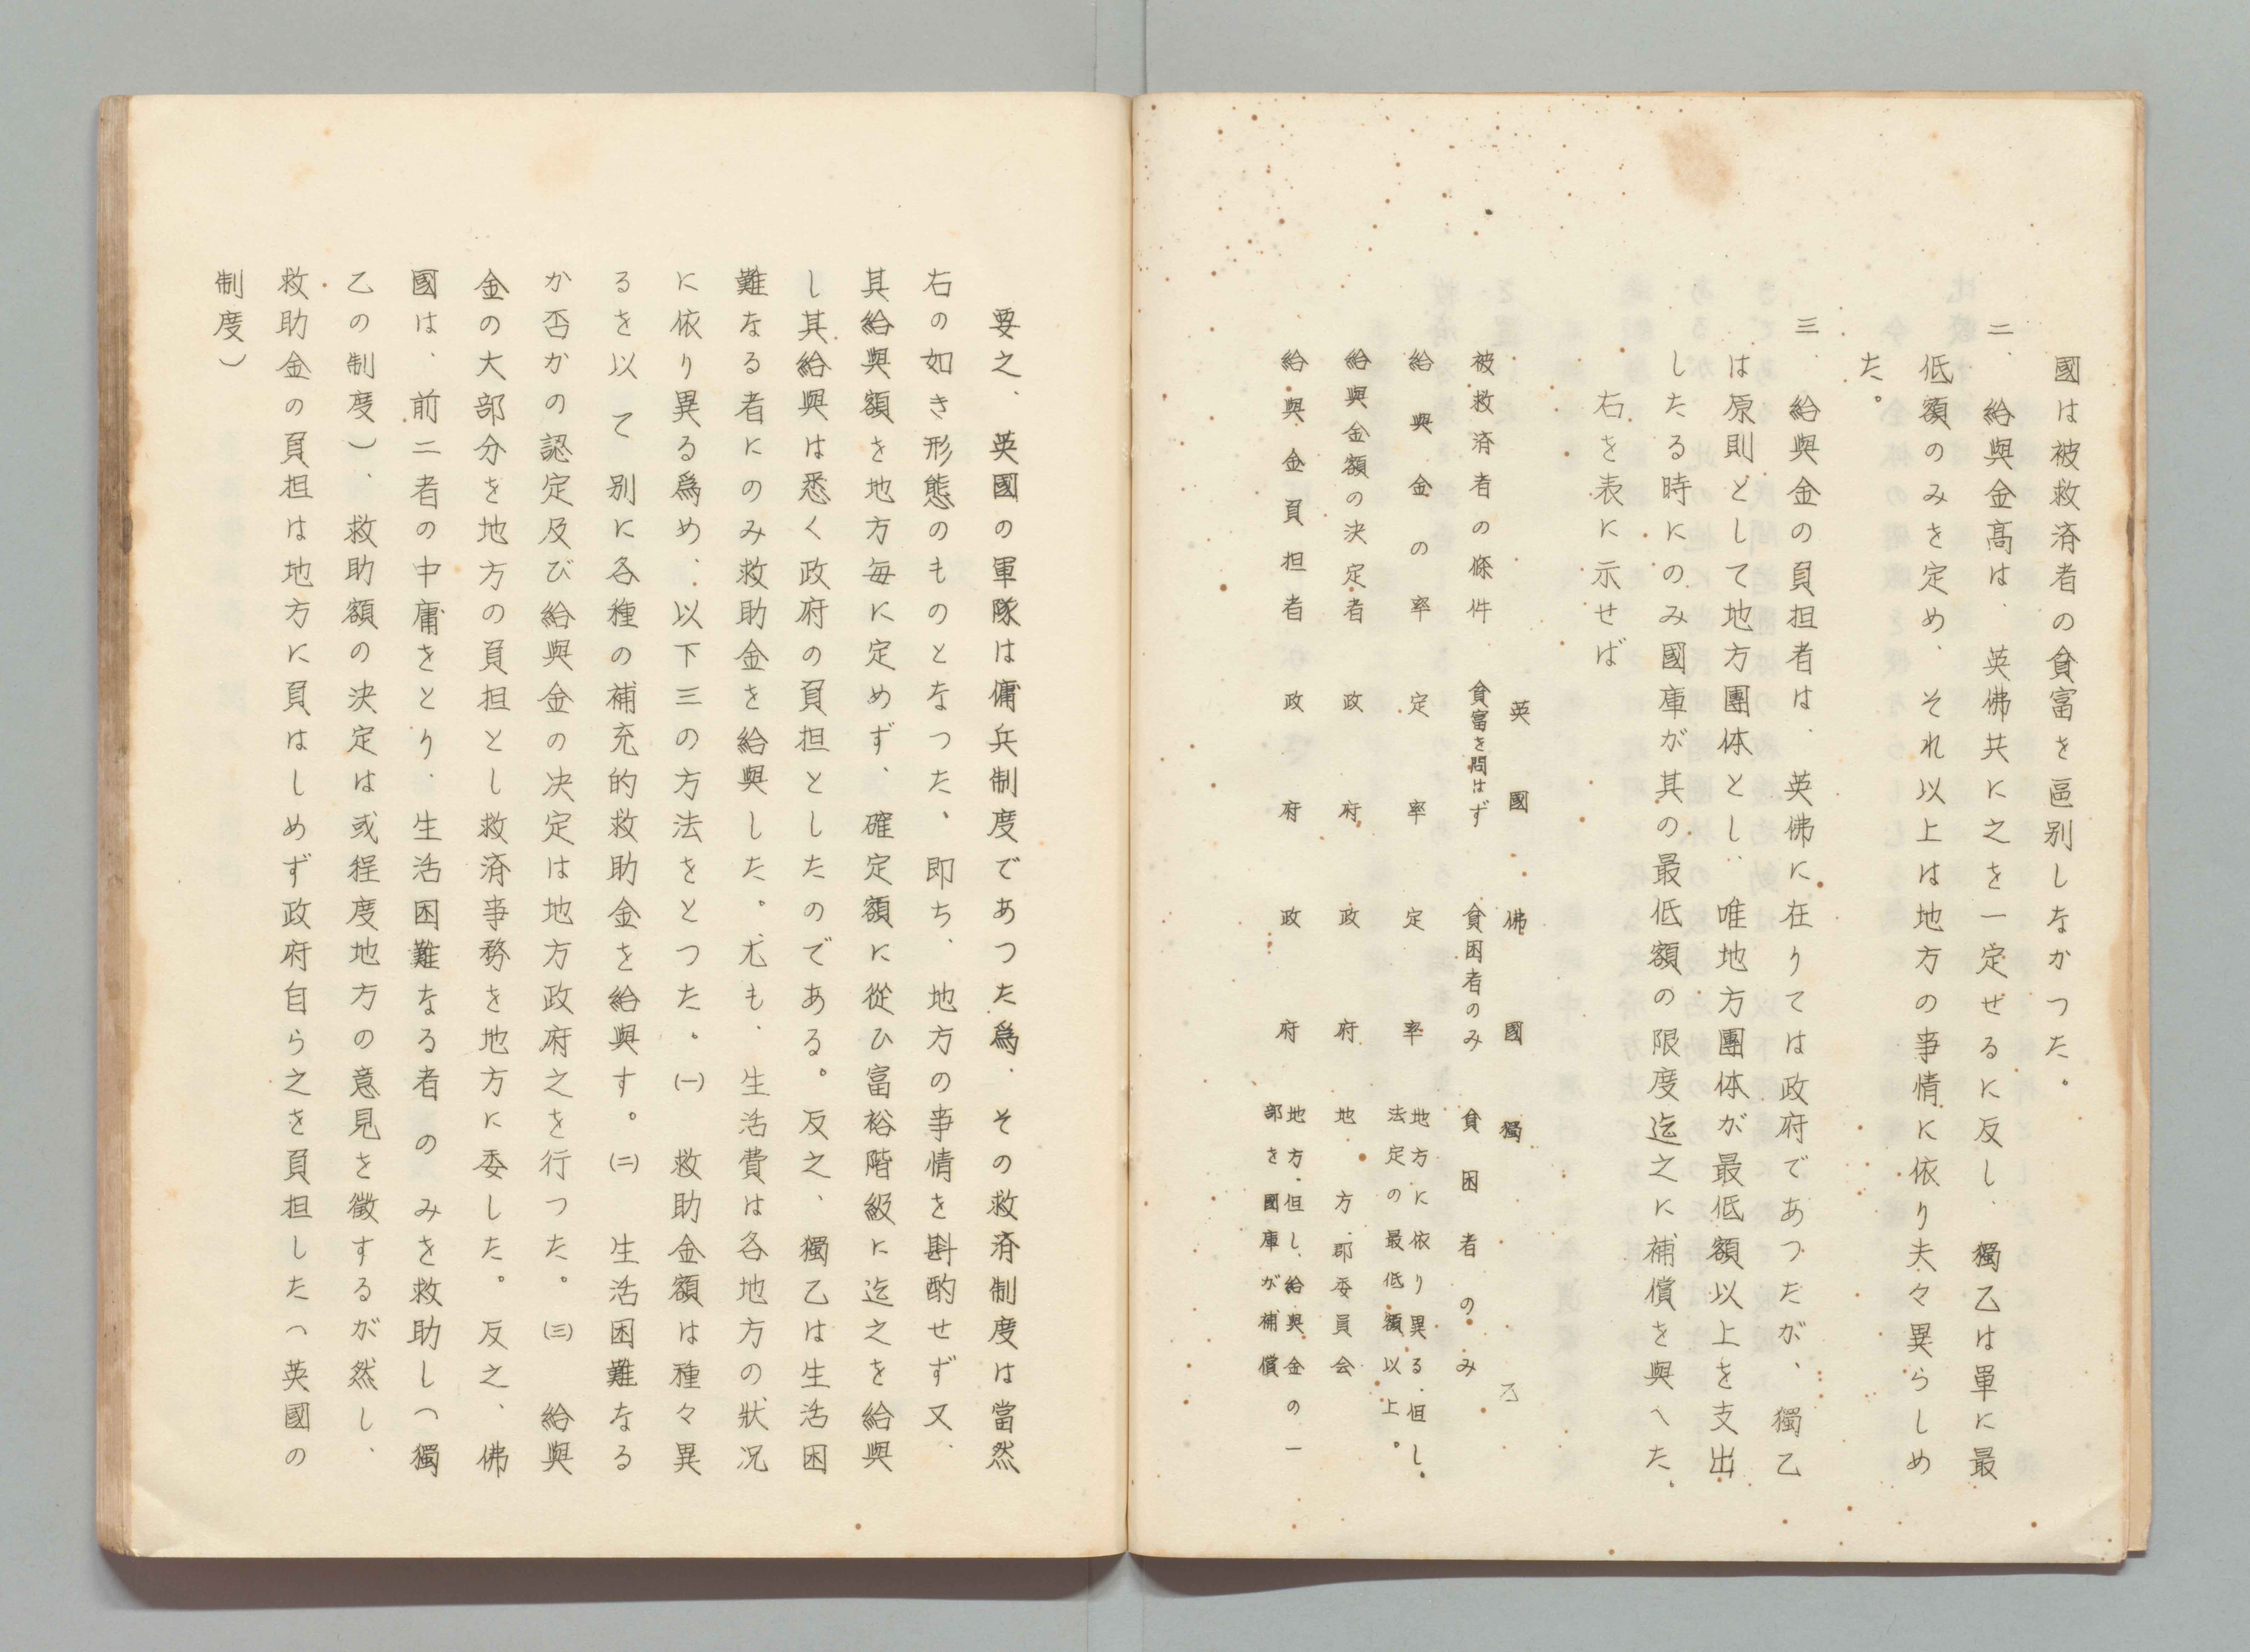 國は被救済者の貧富を區別しなかつた。
二、給與金高は、英佛共に之を一定ぜるに反し、獨乙は單に最
低額のみを定め、それ以上は地方の事情に依り夫々異らしめ
た。
三、給與金の負担者は、英佛に在りては政府であつたが、獨乙
は原則として地方團体とし、唯地方團体が最低額以上を支出
したる時にのみ國庫が其の最低額の限度迄之に補償を與へた、
右を表に示せば
英國 佛國 獨乙
被救済者の條件 貧富を問はず 貧困者のみ 貧困者のみ
給與金の率 定率 定率 地方に依り異る、但し、
法定の最低額以上。
給與金額の決定者 政府 政府 地方、郡委員会
給與金負担者 政府 政府 地方、但し、給與金の一
部を國庫が補償
要之、英國の軍隊は傭兵制度であつた爲、その救済制度は當然
右の如き形態のものとなつた、即ち、地方の事情を斟酌せず又、
其給與額を地方毎に定めず、確定額に從ひ富裕階級に迄之を給與
し其給與は悉く政府の負担としたのである。反之、獨乙は生活困
難なる者にのみ救助金を給與した。尤も、生活費は各地方の狀况
に依り異る爲め、以下三の方法をとつた。㈠救助金額は種々異
るを以て別に各種の補充的救助金を給與す。㈡生活困難なる
か否かの認定及び給與金の決定は地方政府之を行つた。㈢給與
金の大部分を地方の負担とし救済事務を地方に委した。反之、佛
國は、前二者の中庸をとり、生活困難なる者のみを救助し（獨
乙の制度）、救助額の決定は或程度地方の意見を徵するが然し、
救助金の負担は地方に負はしめず政府自ら之を負担した（英國の
制度）